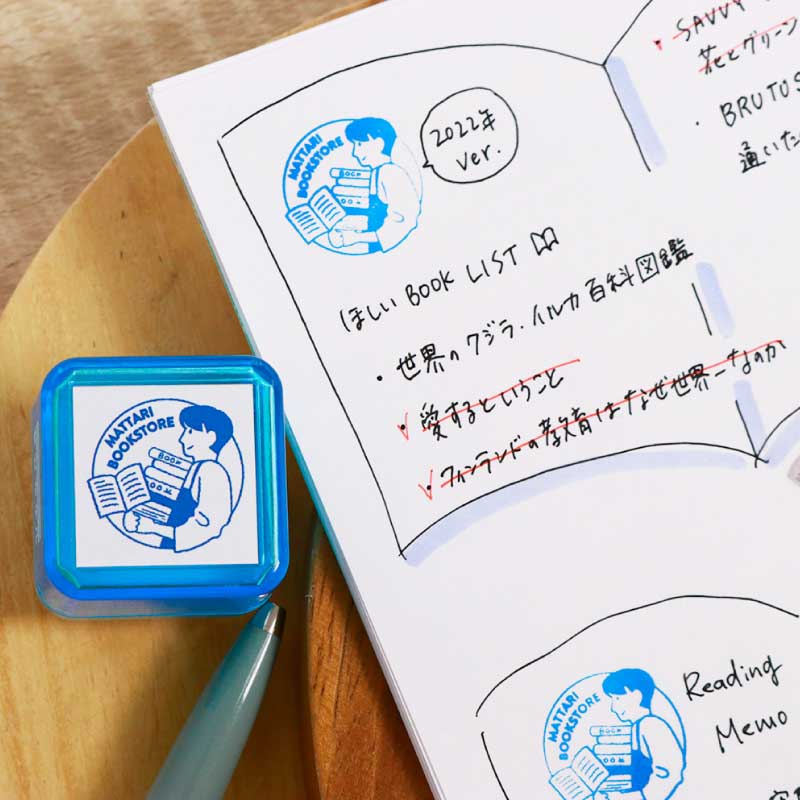 MATTARI
BOOKSTORE
BOOK
2022年
ver.
ほしい BOOK LIST
・世界のクジラ・イルカ百科図鑑
・愛するということ
・フィンランドの教育はなぜ世界一なのか
・SAVVY
花とグリーン
・BRUTUS
通いた
MATTARI
BOOKSTORE
BOOK
MATTARI
BOOKSTORE
BOOK
Reading
Memo